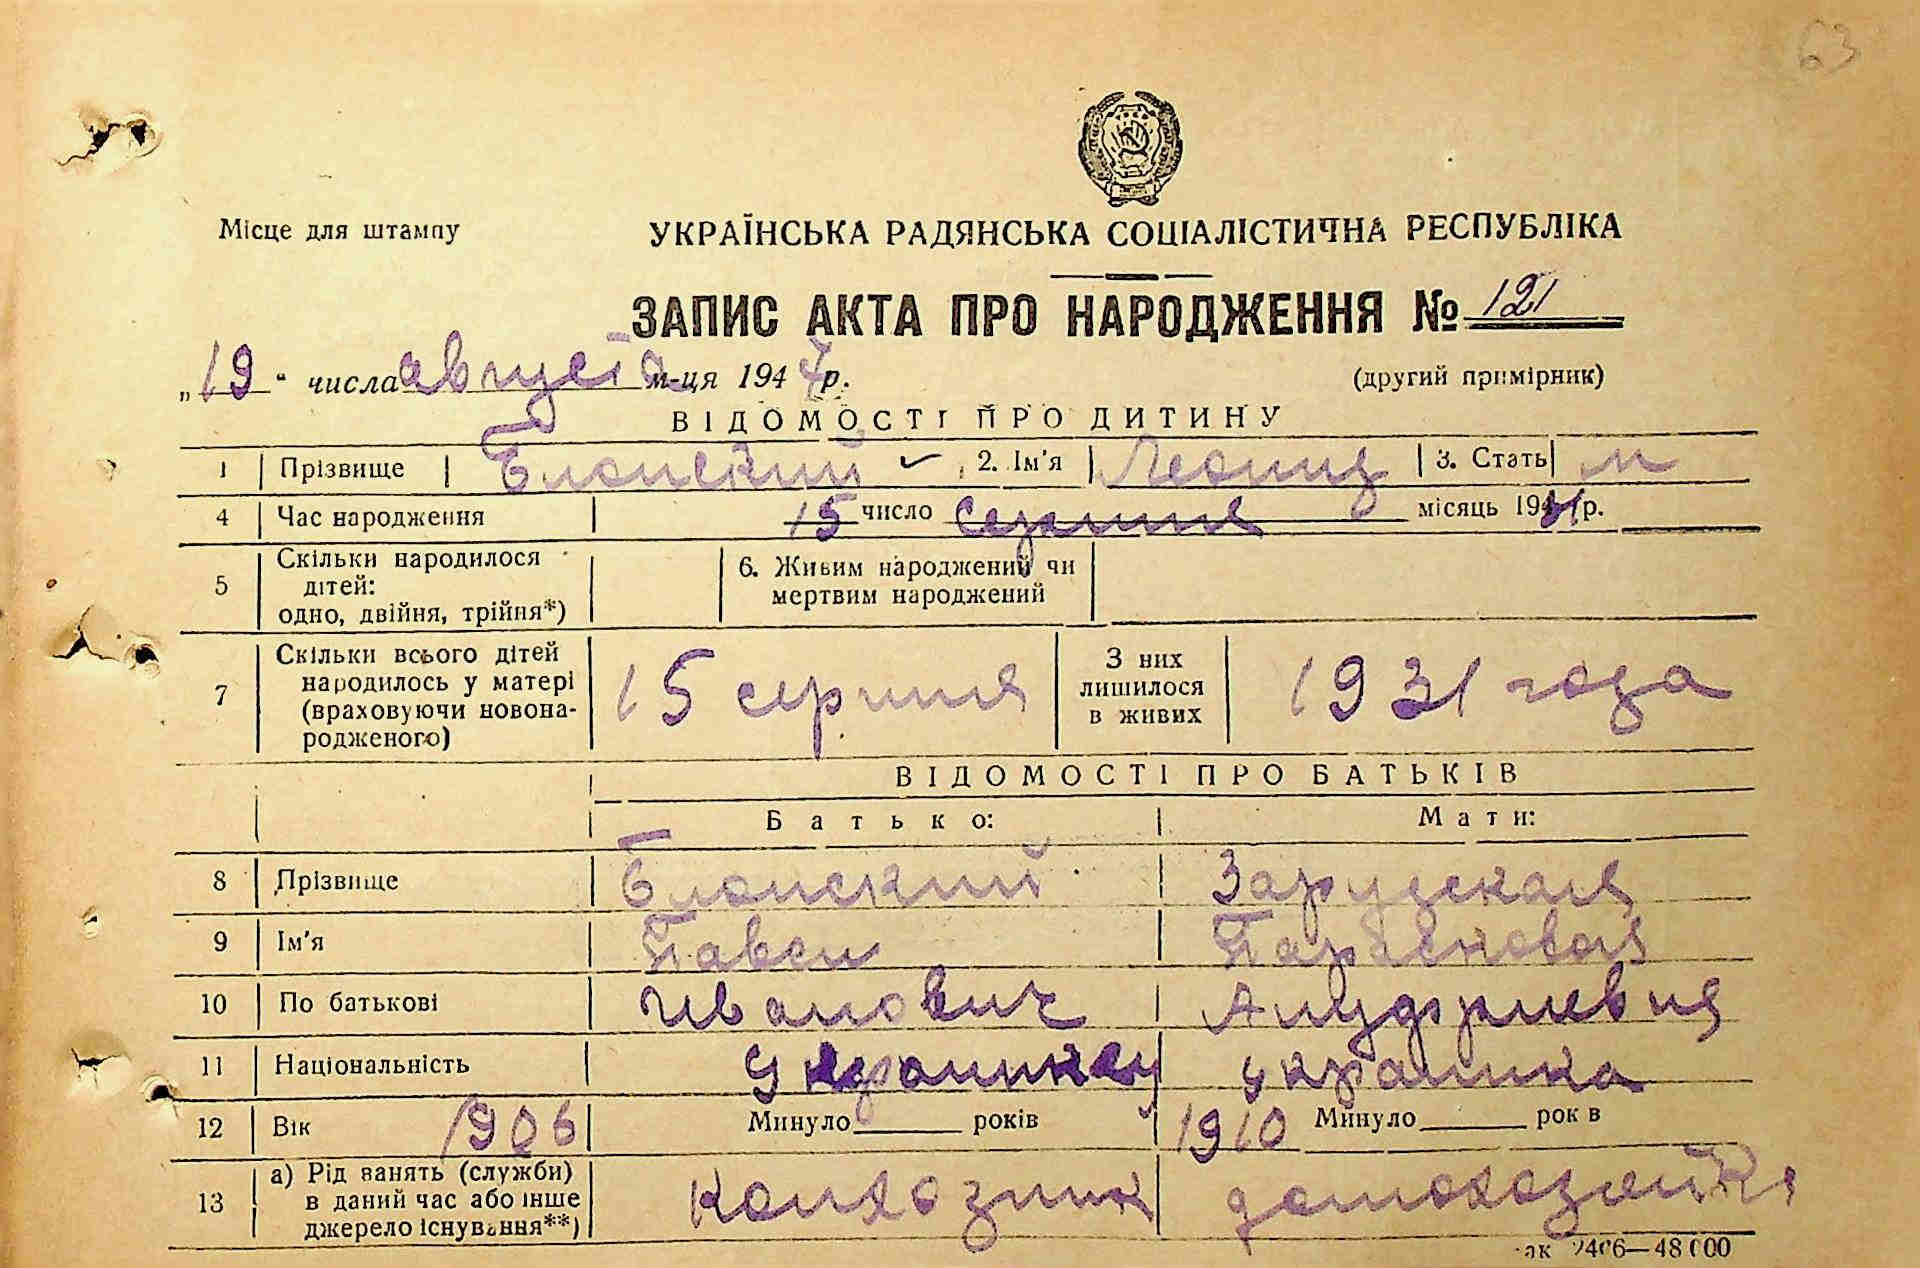 63
Місце для штампу
УКРАЇНСЬКА РАДЯНСЬКА СОЦІАЛІСТИЧНА РЕСПУБЛІКА
ЗАПИС АКТА ПРО НАРОДЖЕННЯ № 121
„19" числа августа м-ця 1947 р.
(другий примірник)
ВІДОМОСТІ ПРО ДИТИНУ
1 Прізвище Блонский 2. Ім'я Леонид 3. Стать м
4 Час народження 15 число серпня місяць 1931 р.
5 Скільки народилося дітей: одно, двійня, трійня*)
6. Живим народжений чи мертвим народжений
7 Скільки всього дітей народилось у матері (враховуючи новонародженого) 15 серпня
З них лишилося в живих 1931 года
ВІДОМОСТІ ПРО БАТЬКІВ
Батько: Мати:
8 Прізвище Блонский Зарудская
9 Ім'я Павел
10 По батькові Иванович
11 Національність украинка
12 Вік 1906 Минуло років 1910 Минуло рок в
13 а) Рід занять (служби) в даний час або інше джерело існування**) колхозник домохозяйка
ак 2406—48000